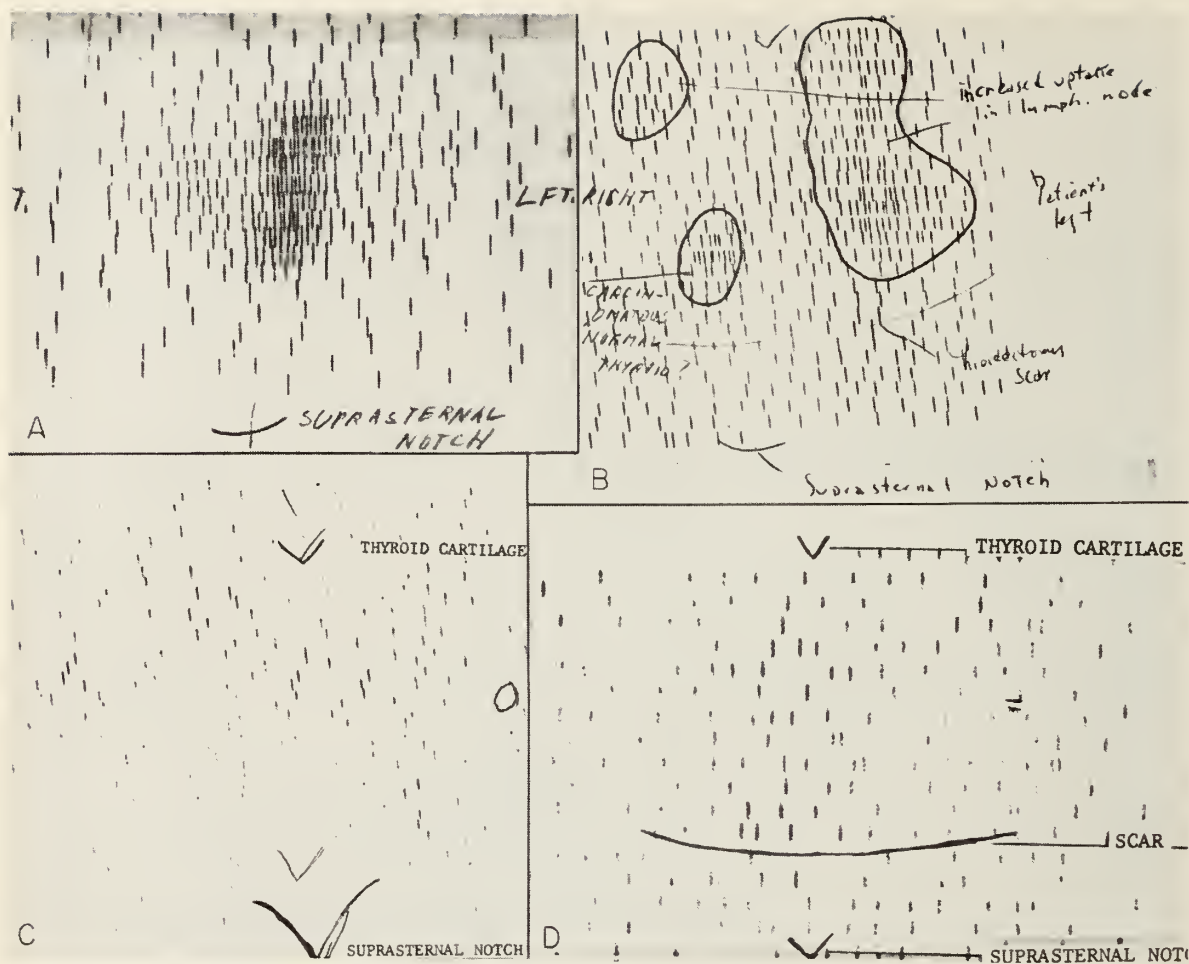 LEFT.
RIGHT
SUPRASTERNAL
NOTCH
A
increased uptake
in lymph. node
Patient's
left
CARCIN-
OMATOUS
NORMAL
THYROID?
scar
Suprasternal Notch
B
THYROID CARTILAGE
C
SUPRASTERNAL NOTCH
THYROID CARTILAGE
SCAR
D
SUPRASTERNAL NOTC